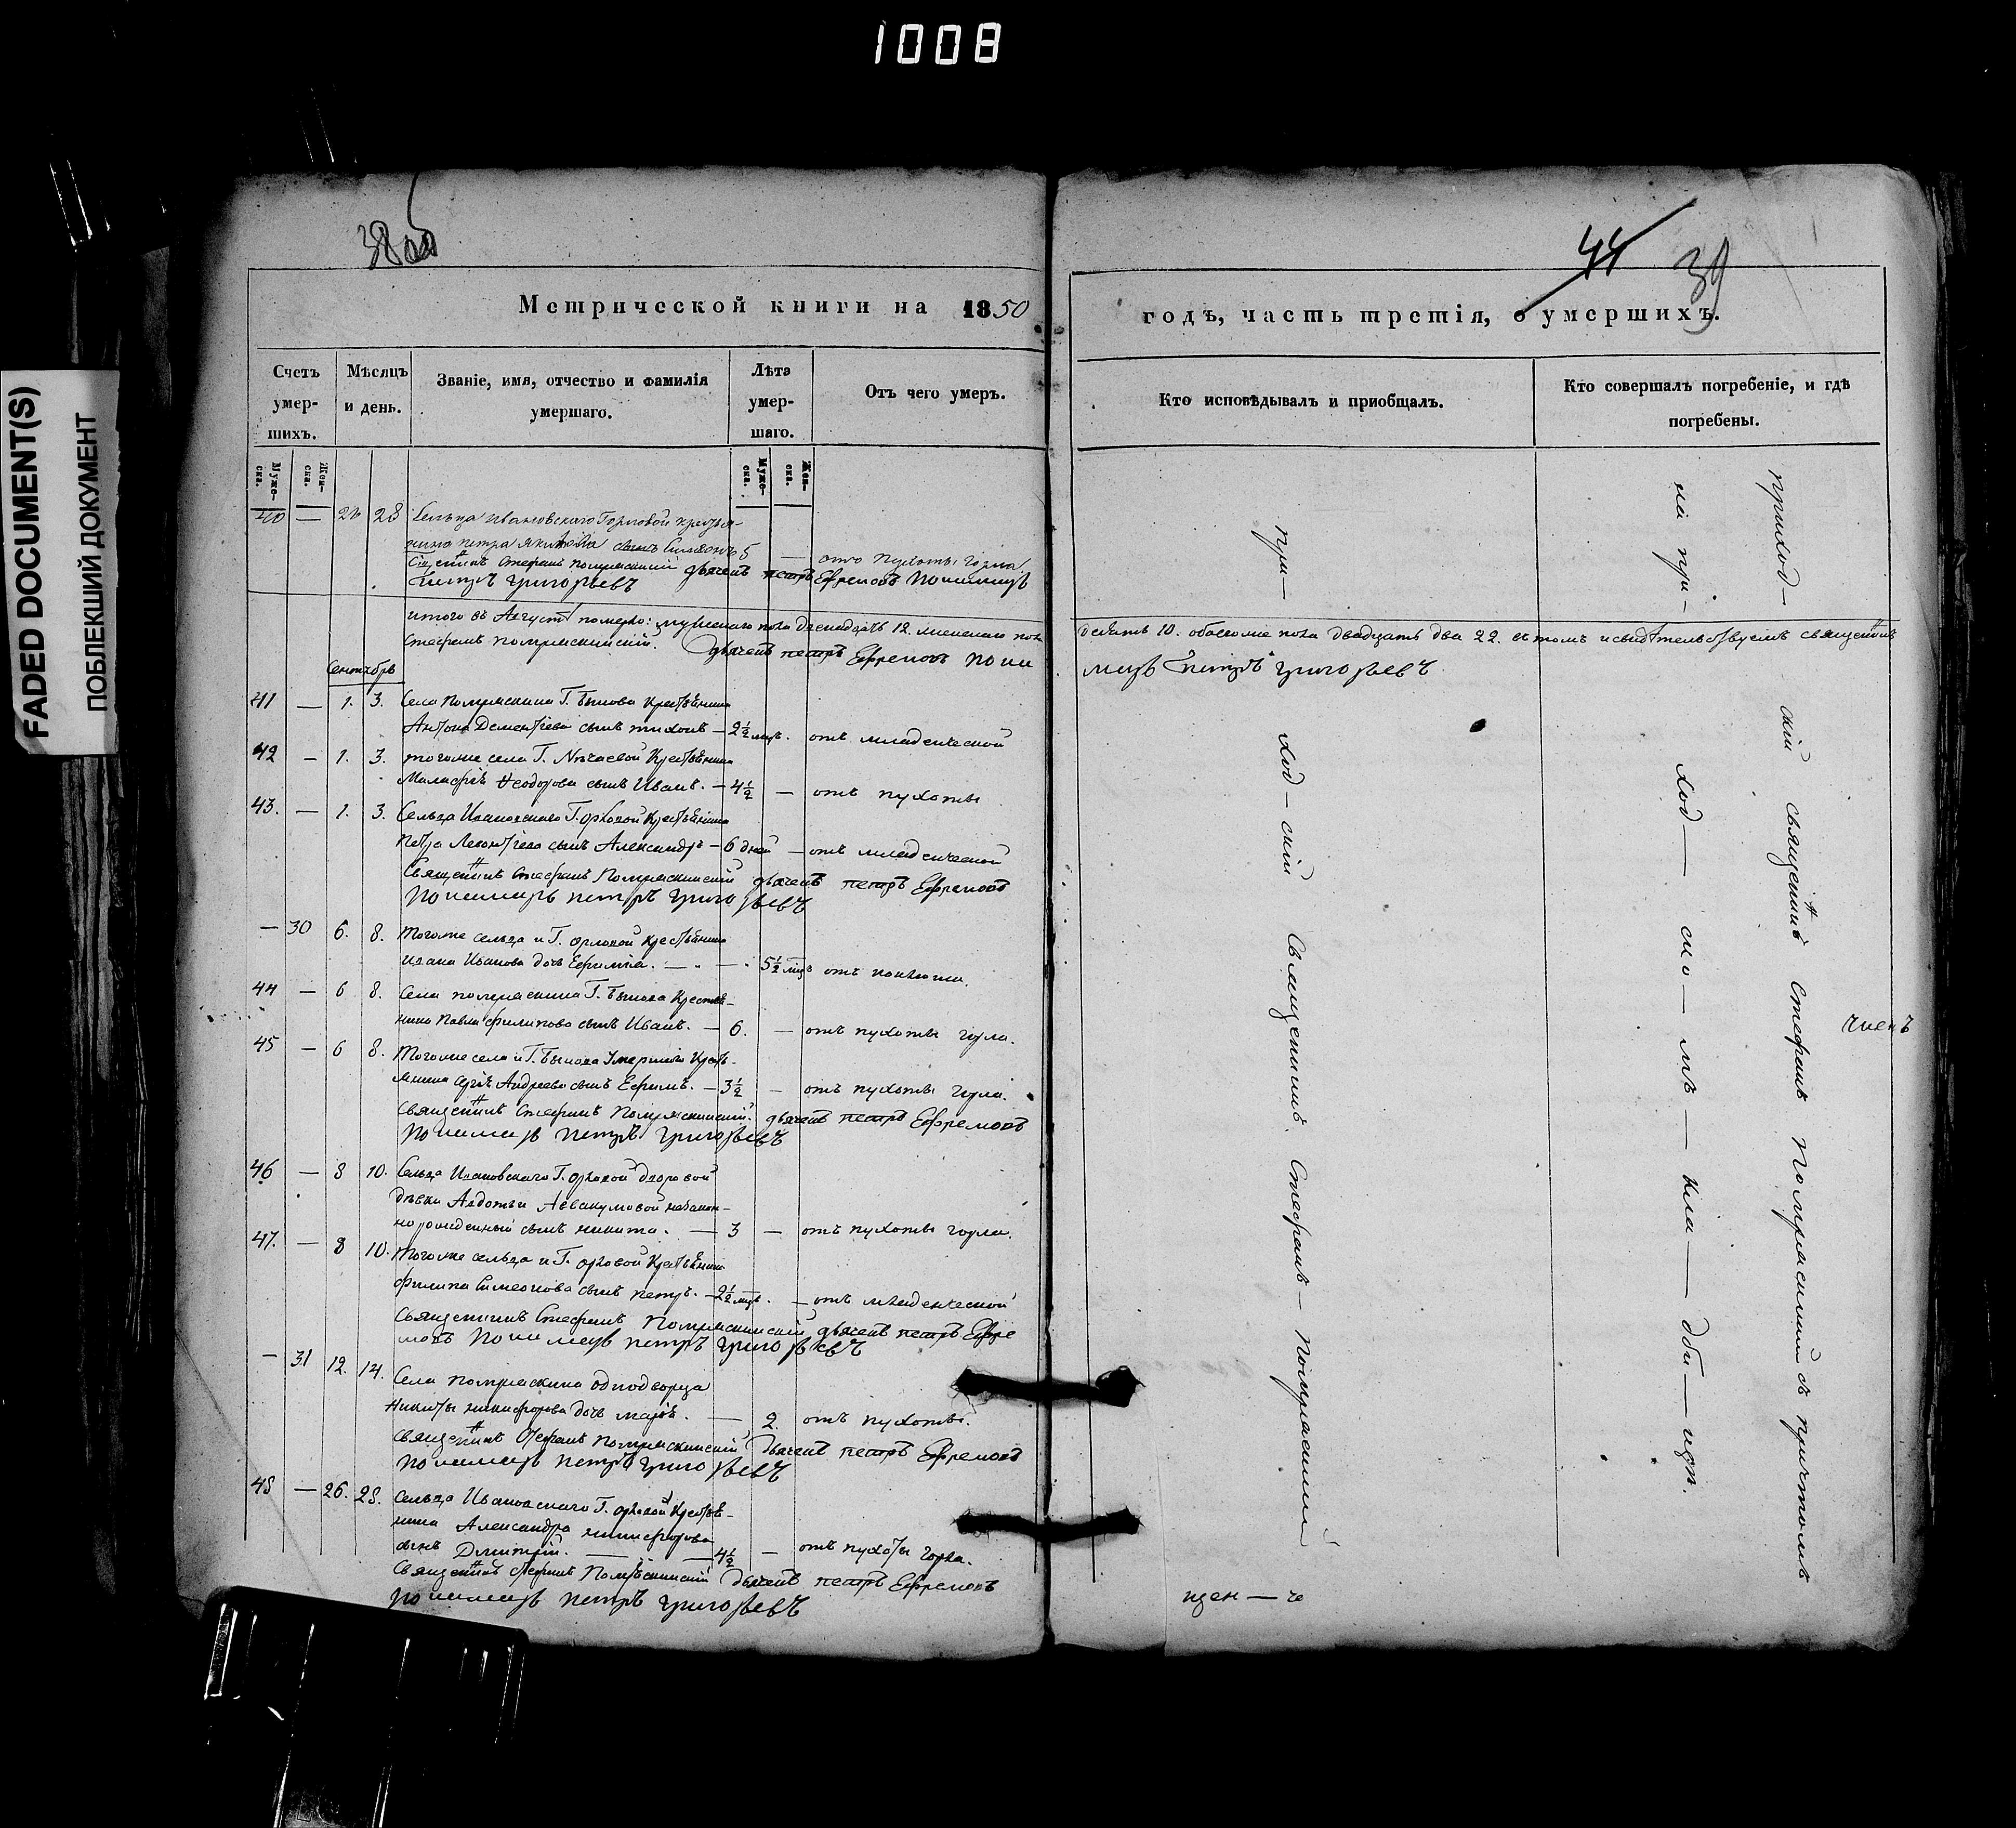 1008
FADED DOCUMENT(S)
ПОБЛЕКШИЙ ДОКУМЕНТ
38
44 39
Метрической книги на 1850
годъ, часть третія, о умершихъ.
Счетъ умер-шихъ.
Мѣсяцъ и день.
Званіе, имя, отчество и фамилія умершаго.
Лѣта умер-шаго.
Отъ чего умеръ.
Кто исповѣдывалъ и пріобщалъ.
Кто совершалъ погребеніе, и гдѣ погребены.
Муже-ска.
Жен-ска.
Муже-ска.
Жен-ска.
40 — 26 28 Сельца Ивановскаго Г. Орловой крестья-
нина Петра Якимова сынъ Симеонъ 5 — отъ пухоты горла
Священникъ Стефанъ Помряскинскій дьячекъ Петръ Ефремовъ Пономарь
Петръ Григорьевъ
итого въ Августѣ померло: мужескаго пола двенадцать 12. женскаго пола
десять 10. обоегоже пола двадцать два 22. въ томъ и свидѣтельствуемъ священникъ
Стефанъ Помряскинскій. Дьячекъ Петръ Ефремовъ Поно
марь Петръ Григорьевъ
Сентябрь
41 — 1. 3. Села Помряскина Г. Бычкова Крестьянина
Антона Дементіева сынъ Тихонъ — 2½ мца. отъ младенческой
42 — 1. 3. тогоже села Г. Нѣчаевой Крестьянина
Малафѣя Ѳеодорова сынъ Иванъ. — 4½ — отъ пухоты
43. — 1. 3. Сельца Ивановскаго Г. Орловой Крестьянина
Петра Леонтіева сынъ Александръ — 6 дней — отъ младенческой
Священникъ Стефанъ Помряскинскій дьячекъ Петръ Ефремовъ
Пономарь Петръ Григорьевъ
— 30 6. 8. Тогоже сельца и Г. Орловой Крестьянина
Ивана Иванова дочь Ефимія. — 5½ мца отъ
44 — 6 8. Села Помряскина Г. Бычкова Крестья-
нина Павла Филипова сынъ Иванъ. — 6. — отъ пухоты горла.
45 — 6 8. Тогоже села и Г. Бычкова Умершаго Кресть-
янина Сергѣя Андреева сынъ Ефимъ. — 3½ — отъ пухоты горла.
Священникъ Стефанъ Помряскинскій. дьячекъ Петръ Ефремовъ
Пономарь Петръ Григорьевъ
46 — 8 10. Сельца Ивановскаго Г. Орловой дворовой
дѣвки Авдотьи Аввакумовой незакон-
норожденный сынъ Никита. — 3 — отъ пухоты горла.
47. — 8 10. Тогоже сельца и Г. Орловой Крестьянина
Филипа Симеонова сынъ Петръ. — 2½ мца. — отъ младенческой
Священникъ Стефанъ Помряскинскій дьячекъ Петръ Ефре
мовъ Пономарь Петръ Григорьевъ
— 31 12. 14. Села Помряскина однодворца
Никиты Никифорова дочь Марія. — 2 отъ пухоты.
Священникъ Стефанъ Помряскинскій Дьячекъ Петръ Ефремовъ
Пономарь Петръ Григорьевъ
48 — 26. 28. Сельца Ивановскаго Г. Орловой Крестья-
нина Александра Никифорова
сынъ Димитрій. — 4½ — отъ пухоты горла.
Священникъ Стефанъ Помряскинскій Дьячекъ Петръ Ефремовъ
Пономарь Петръ Григорьевъ
при— ход—скій Священникъ Стефанъ — Помряскинскій
приход— скій священникъ Стефанъ Помряскинскій съ причтомъ
на при— ход— ско— мъ— кла— дби— щѣ.